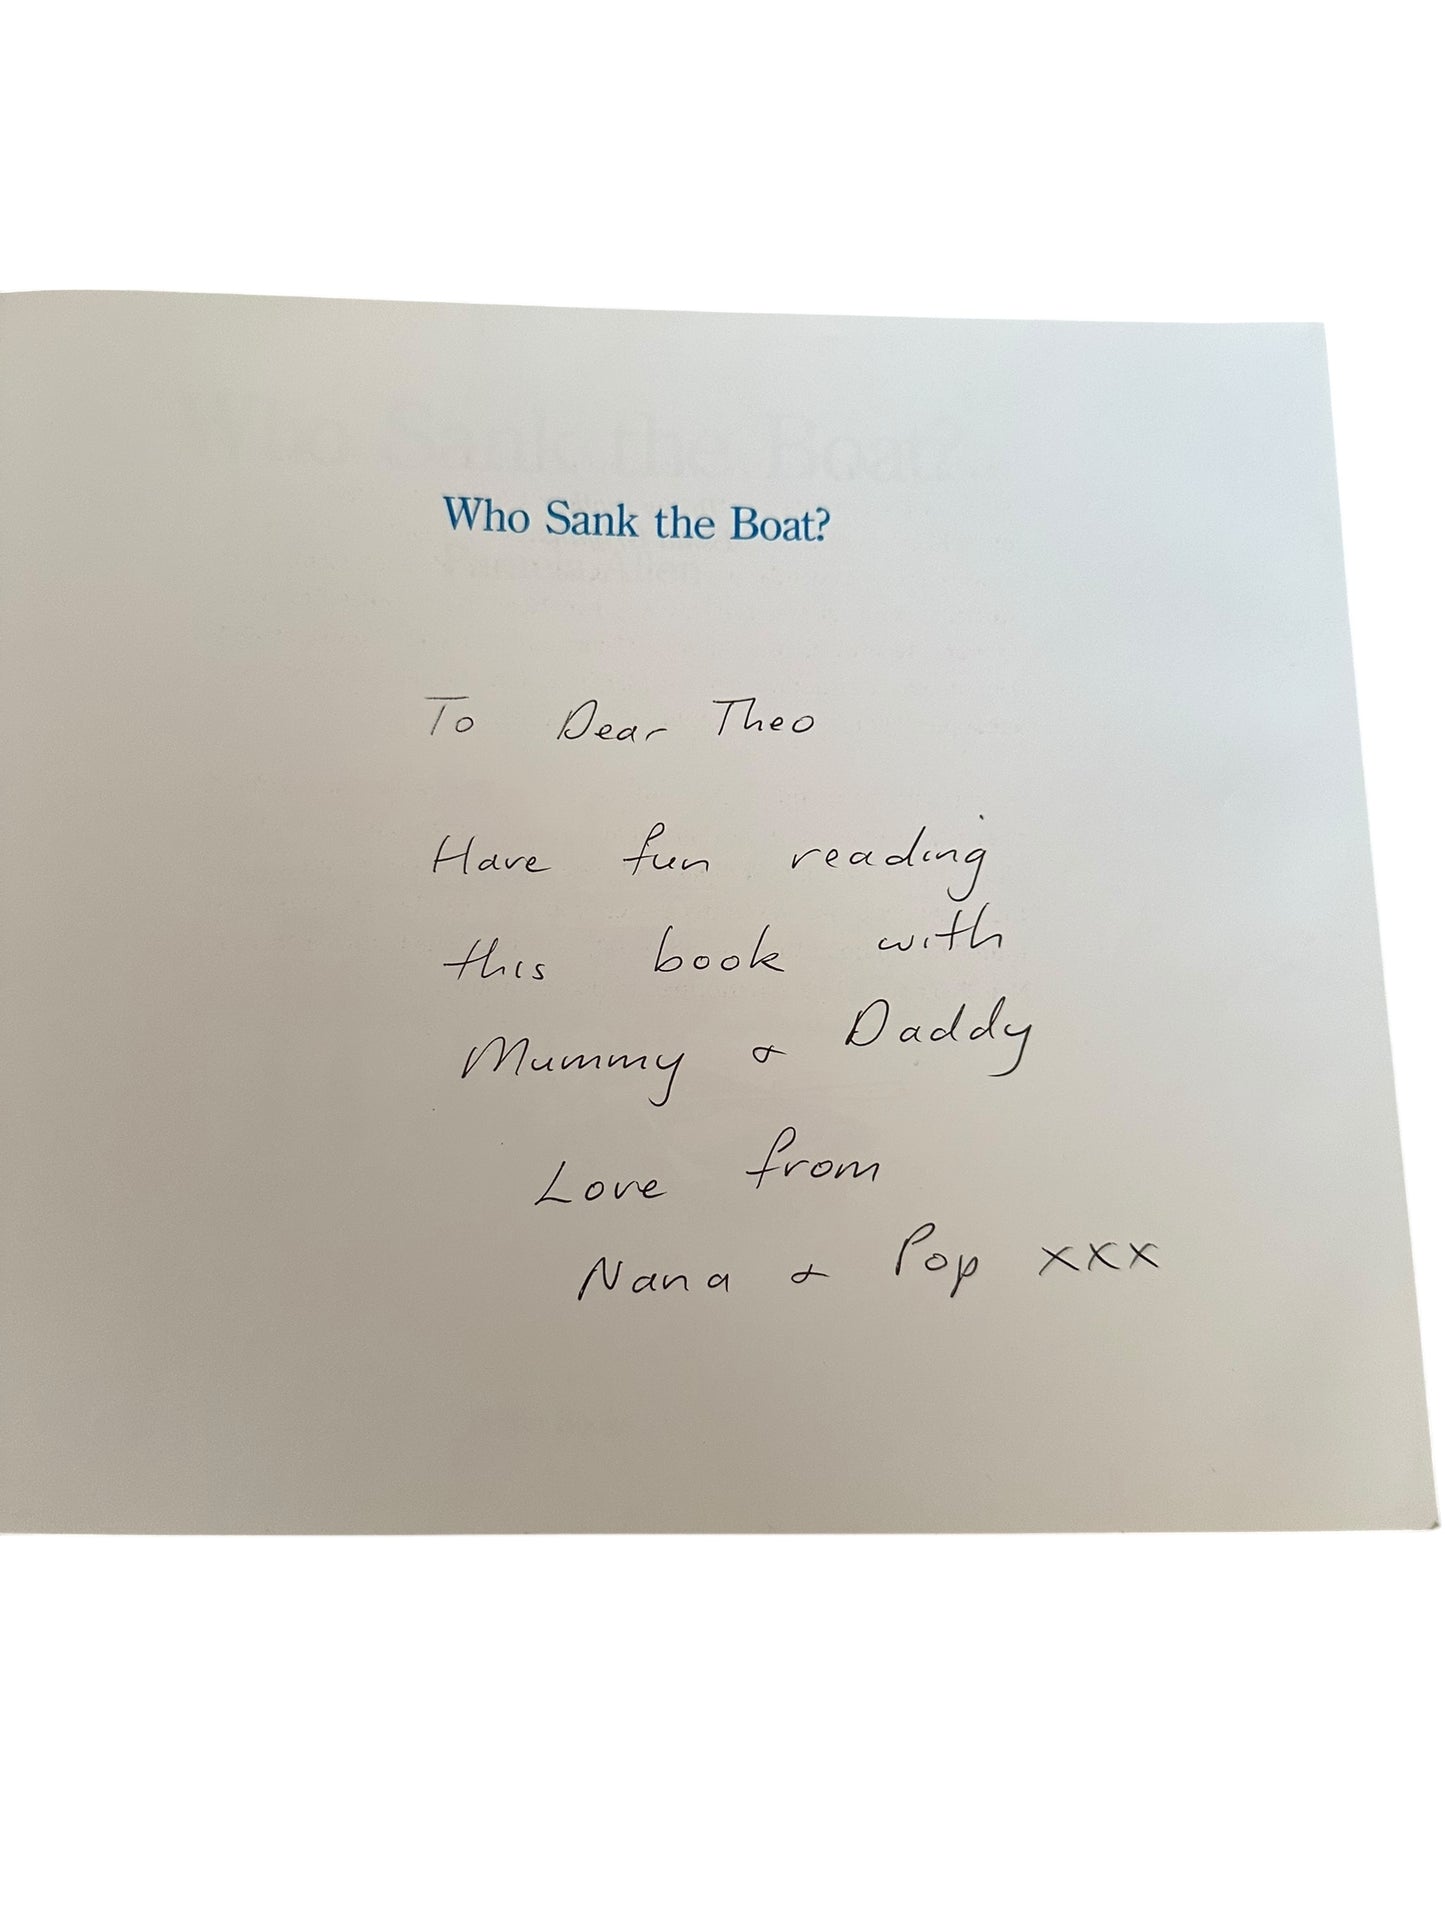 Who Sank the Boat?
To Dear Theo
Have fun reading
this book with
Mummy & Daddy
Love from
Nana & Pop xxx